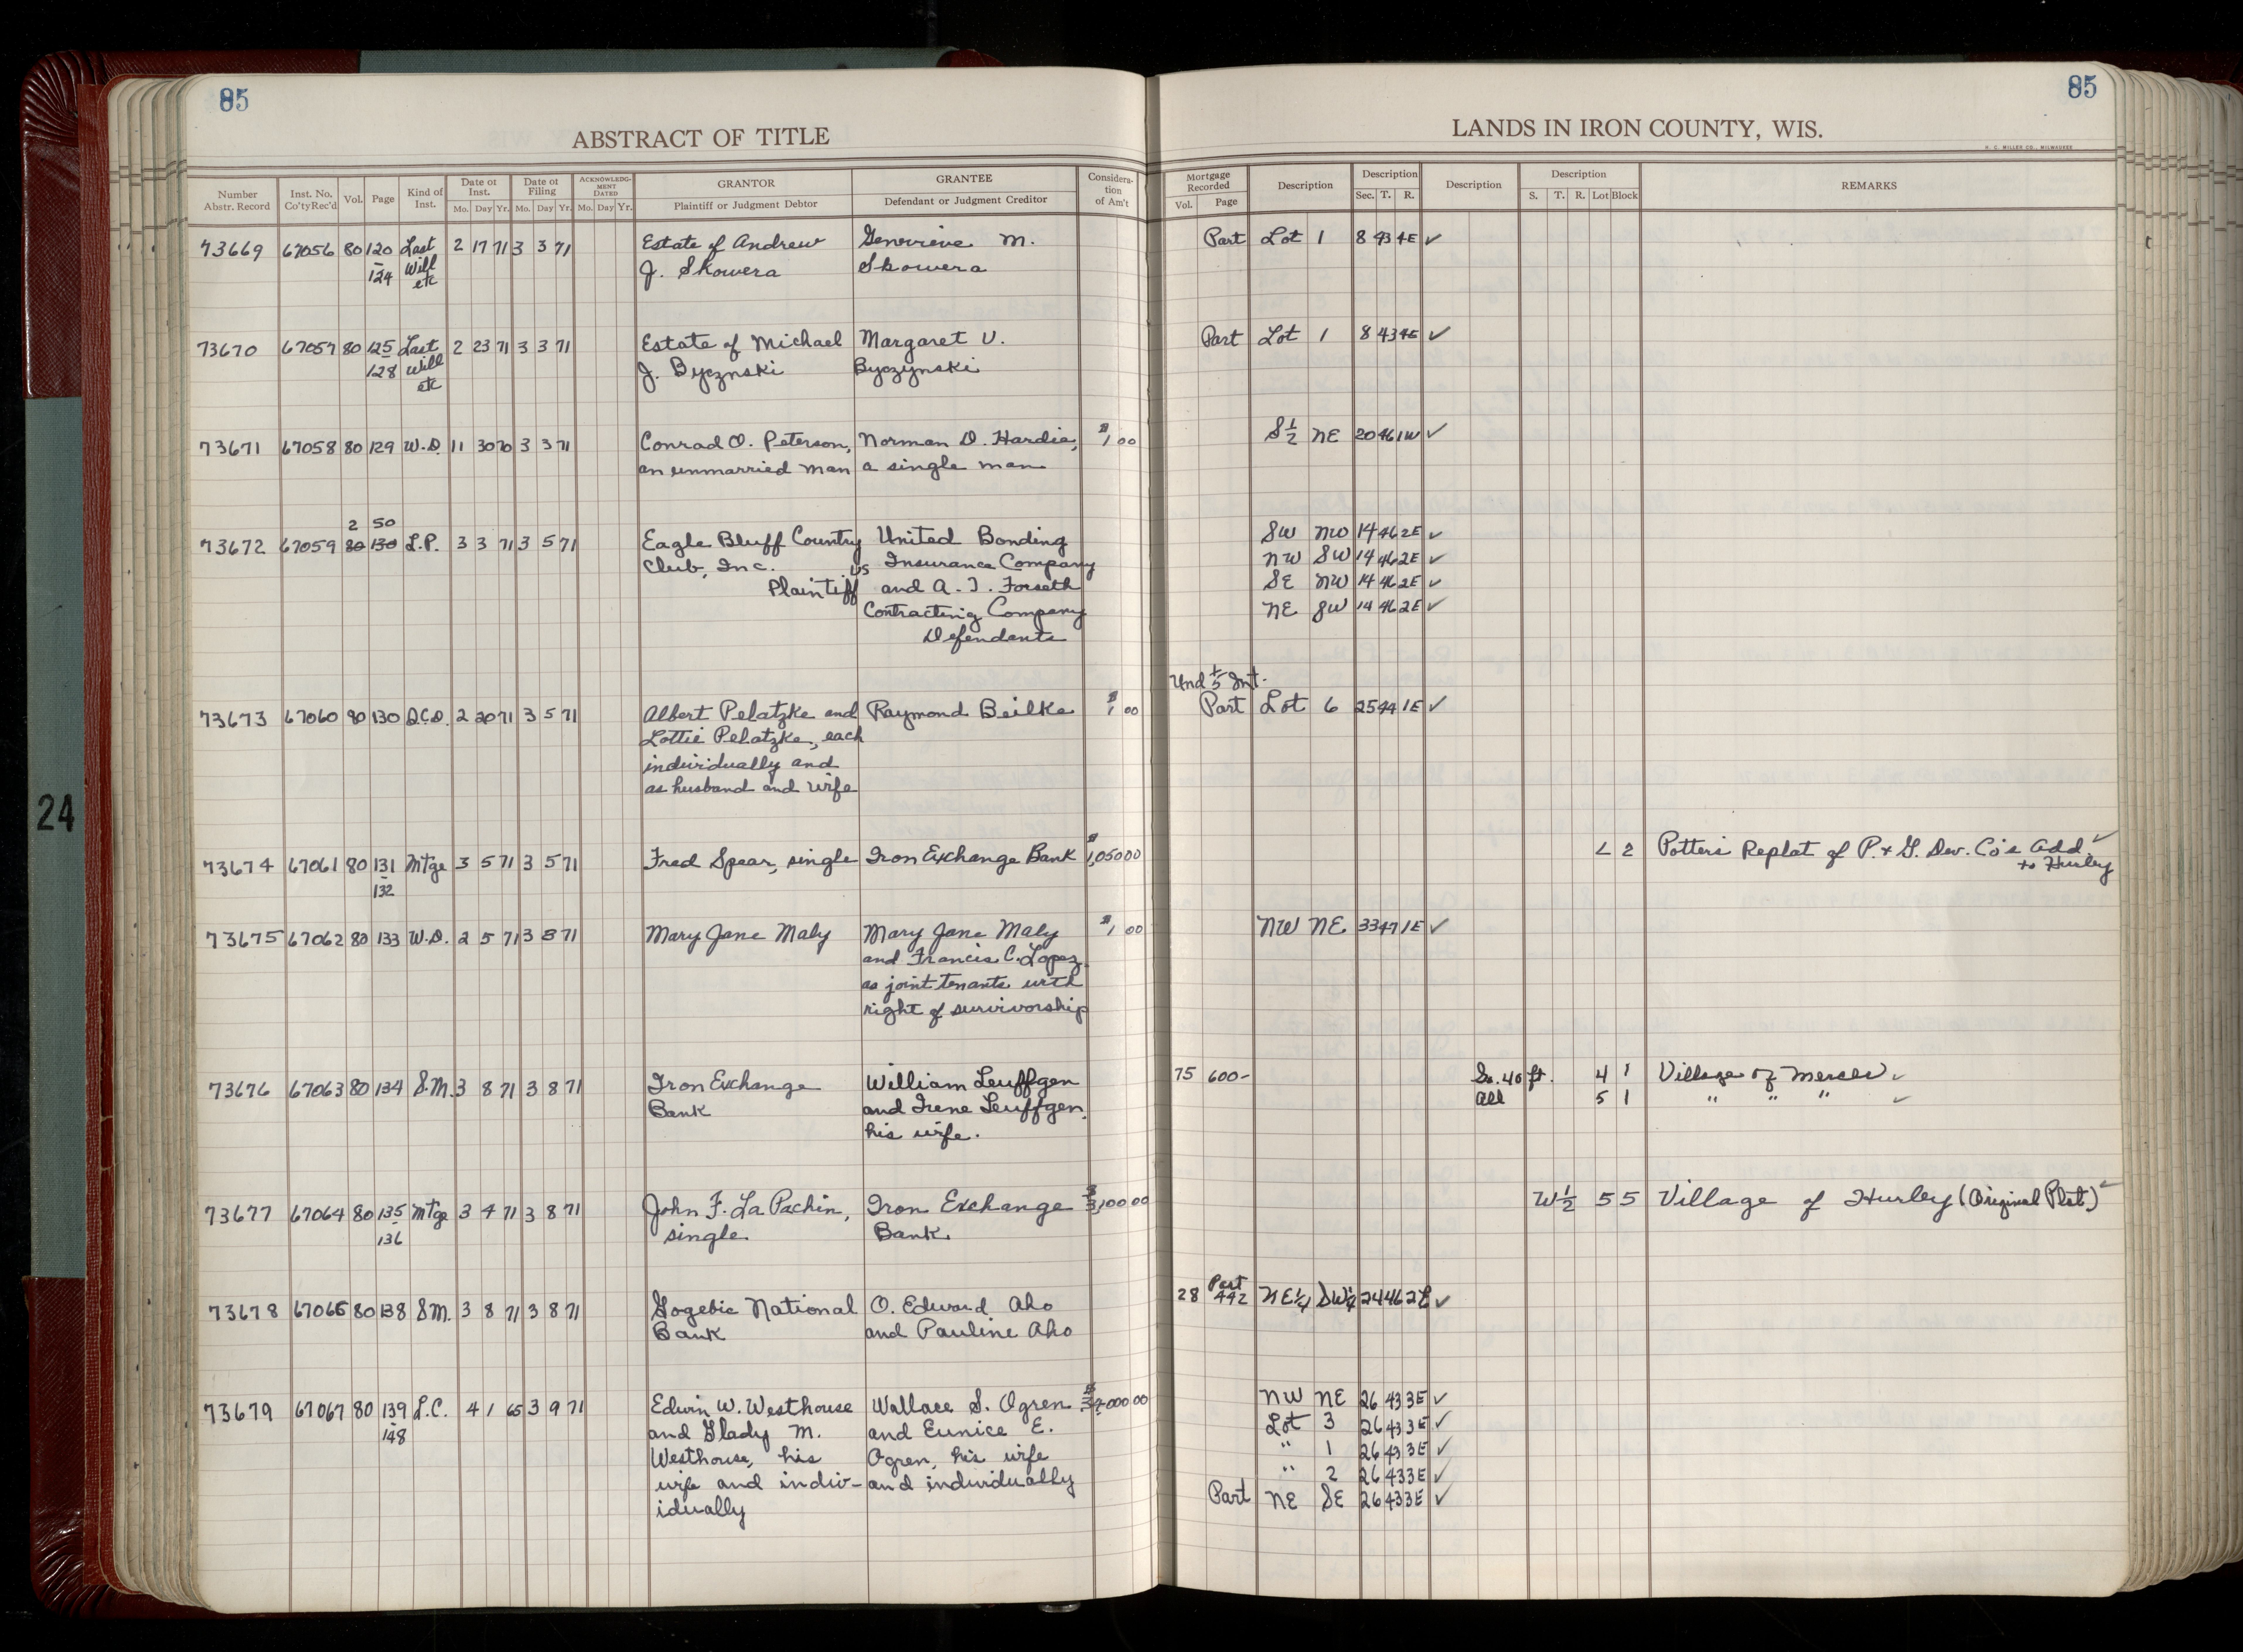 85
85
ABSTRACT OF TITLE
LANDS IN IRON COUNTY, WIS.
H. C. MILLER CO., MILWAUKEE
Number Abstr. Record | Inst. No. Co'ty Rec'd | Vol. | Page | Kind of Inst. | Date of Inst. Mo. Day Yr. | Date of Filing Mo. Day Yr. | ACKNOWLEDGMENT DATED Mo. Day Yr. | GRANTOR Plaintiff or Judgment Debtor | GRANTEE Defendant or Judgment Creditor | Consideration of Am't | Mortgage Recorded Vol. Page | Description | Description Sec. T. R. | Description | Description S. T. R. Lot Block | REMARKS
73669 67056 80 120 Last 2 17 71 3 3 71 Estate of Andrew Genevieve M. Part Lot 1 8 43 4E ✓
- 124 Will J. Skowera Skowera
etc
73670 67057 80 125 Last 2 23 71 3 3 71 Estate of Michael Margaret V. Part Lot 1 8 43 4E ✓
- 128 Will J. Bycznski Byczynski
etc
73671 67058 80 129 W.D. 11 30 70 3 3 71 Conrad O. Peterson, Norman D. Hardie, $1 00 S½ NE 20 46 1W ✓
an unmarried man a single man
2 50
73672 67059 80 130 L.P. 3 3 71 3 5 71 Eagle Bluff Country United Bonding SW NW 14 46 2E ✓
Club, Inc. vs Insurance Company NW SW 14 46 2E ✓
Plaintiff and A. J. Forseth SE NW 14 46 2E ✓
Contracting Company NE SW 14 46 2E ✓
Defendants
Und 1/5 Int.
73673 67060 80 130 Q.C.D. 2 20 71 3 5 71 Albert Pelatzke and Raymond Beilke $1 00 Part Lot 6 25 44 1E ✓
Lottie Pelatzke, each
individually and
as husband and wife
73674 67061 80 131 Mtge 3 5 71 3 5 71 Fred Spear, single Iron Exchange Bank $1,050 00 2 Potter's Replat of P. & G. Dev. Co's Add ✓
- 132 to Hurley
73675 67062 80 133 W.D. 2 5 71 3 8 71 Mary Jane Maly Mary Jane Maly $1 00 NW NE 33 47 1E ✓
and Francis C. Lopez
as joint tenants with
right of survivorship
73676 67063 80 134 S.M. 3 8 71 3 8 71 Iron Exchange William Leuffgen 75 600- So. 40 ft. 4 1 Village of Mercer ✓
Bank and Irene Leuffgen, All 5 1 " " " ✓
his wife.
73677 67064 80 135 Mtge 3 4 71 3 8 71 John F. La Pachin, Iron Exchange $3,100 00 W½ 5 5 Village of Hurley (Original Plat) ✓
- 136 single Bank
73678 67065 80 138 S.M. 3 8 71 3 8 71 Gogebic National O. Edward Aho 28 Part 442 NE¼ SW¼ 24 46 2E ✓
Bank and Pauline Aho
73679 67067 80 139 L.C. 4 1 65 3 9 71 Edwin W. Westhouse Wallace S. Ogren 000 00 NW NE 26 43 3E ✓
- 148 and Glady M. and Eunice E. Lot 3 26 43 3E ✓
Westhouse, his Ogren, his wife " 1 26 43 3E ✓
wife and indiv- and individually " 2 26 43 3E ✓
idually Part NE SE 26 43 3E ✓
24